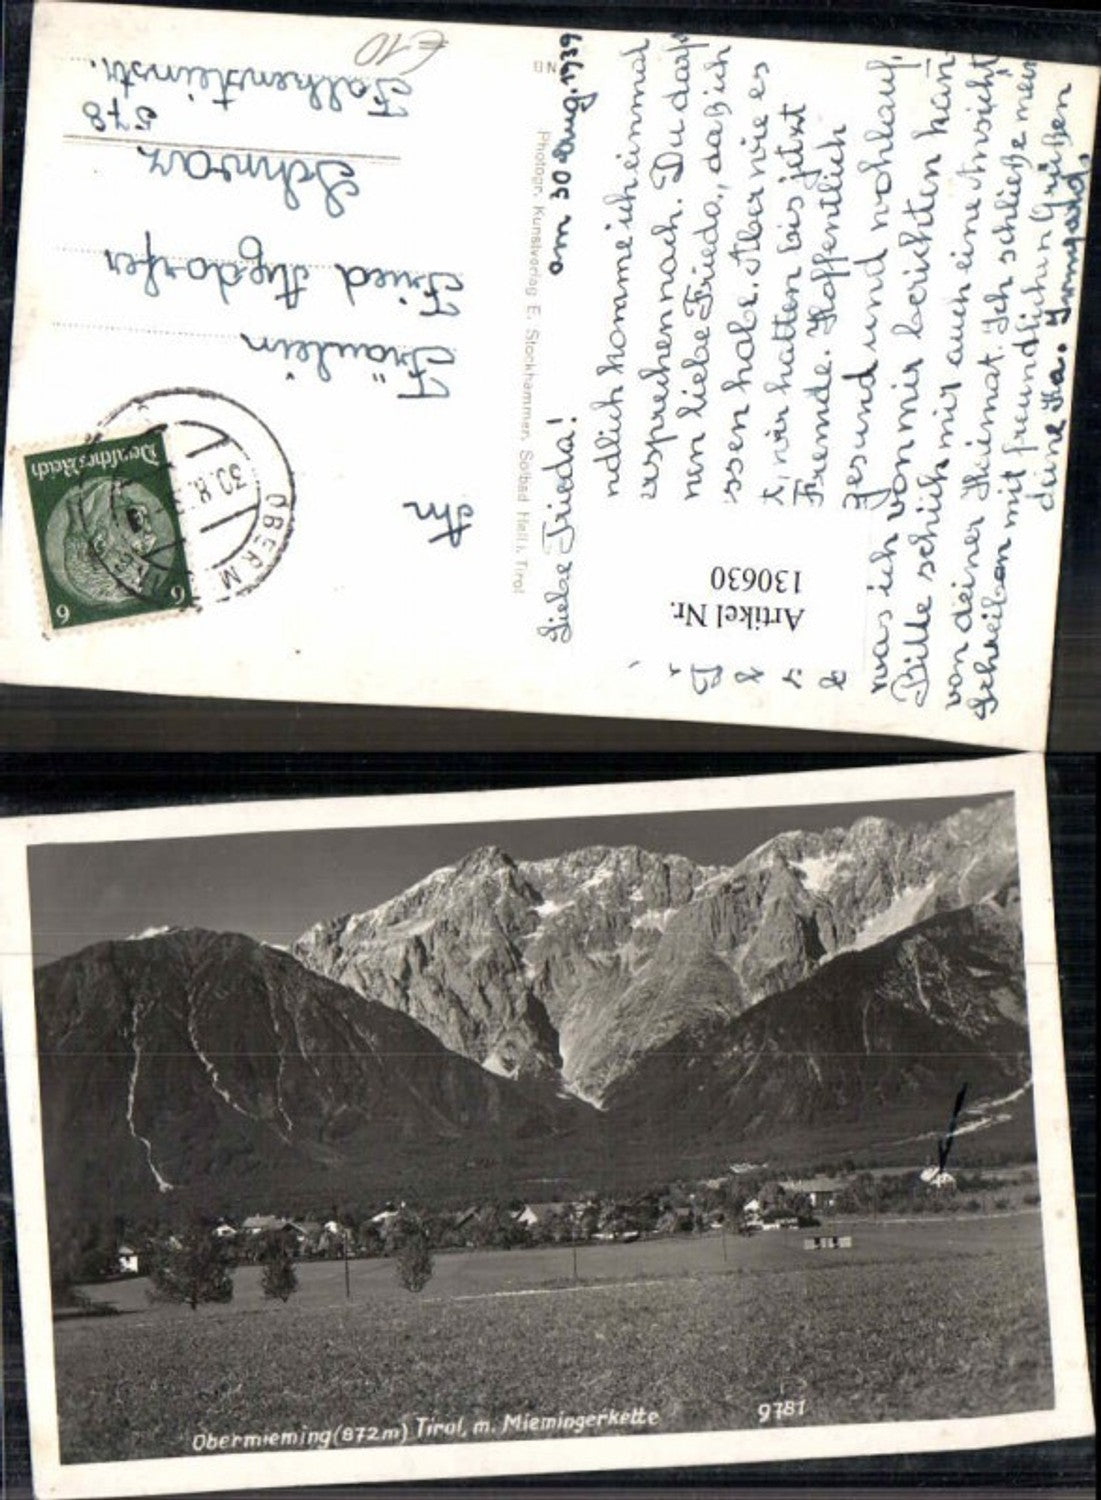 €10
An
Fräulein
Fried
Schwaz
Falkensteinstr.
578
Deutsches Reich
6
6
OBERM
30.8.
NB
Photogr. Kunstverlag E. Stockhammer, Solbad Hall i. Tirol
am 30 Aug. 1939
Liebe Frieda!
ndlich komme ich einmal
ersprechen nach. Du darfst
nen liebe Frieda, daß ich
ssen habe. Aber wie es
t, wir hatten bis jetzt
Fremde. Hoffentlich
gesund und wohlauf,
was ich von mir berichten kan
Bitte schick mir auch eine Ansicht
von deiner Heimat. Ich schließe mein
Schreiben mit freundlichen Grüßen
deine Ka. Irmgard.
Artikel Nr.
130630
Obermieming (872m) Tirol, m. Miemingerkette
9781